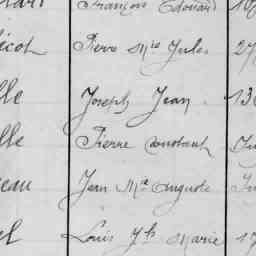 François Edouard
Pierre Mie Jules 27
Joseph Jean 13
lle Pierre Constant
eau Jean Mie Auguste
el Louis Jh Marie 17